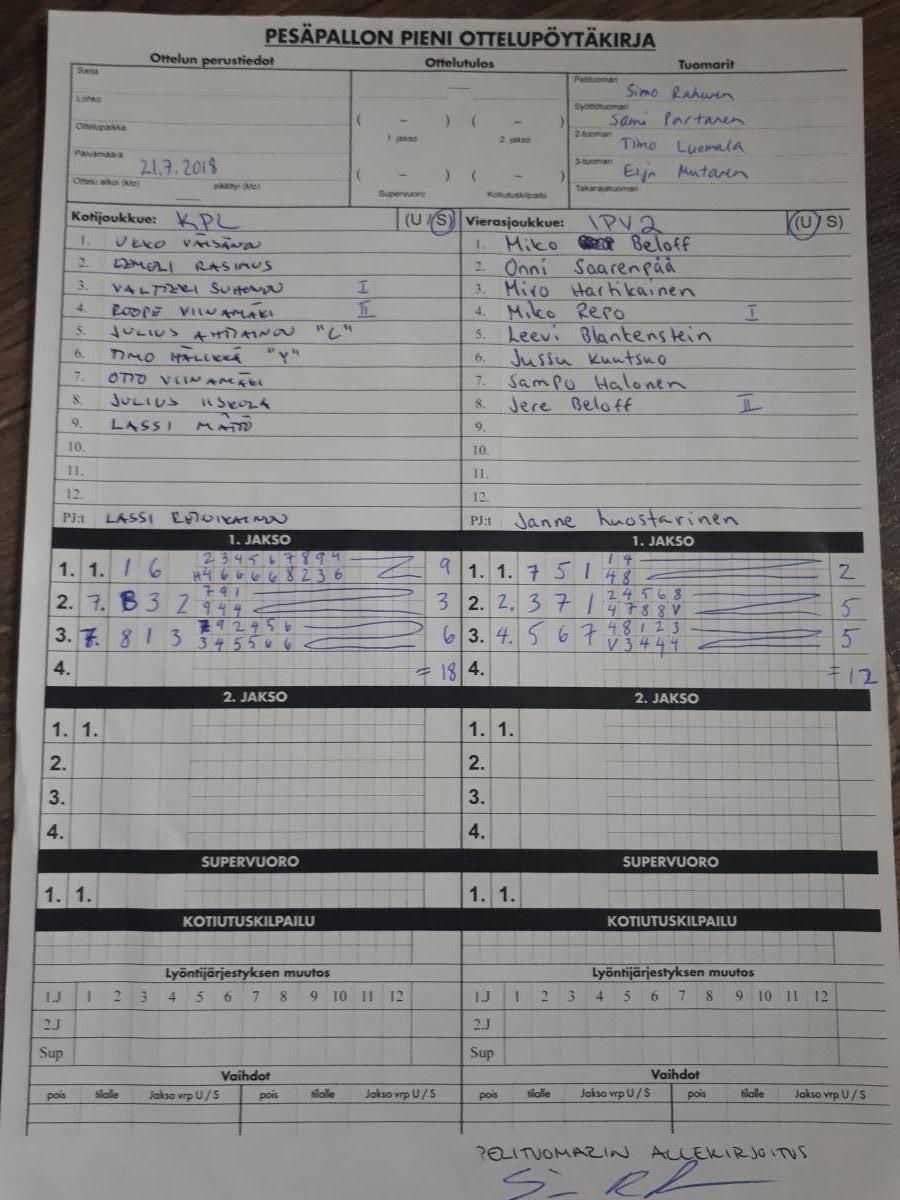 PESÄPALLON PIENI OTTELUPÖYTÄKIRJA
Ottelun perustiedot Ottelutulos Tuomarit
Sarja
Lohko
Ottelupaikka
Päivämäärä 21.7.2018
Ottelu alkoi (klo) päättyi (klo)
( – ) ( – )
1. jakso 2. jakso
( – ) ( – )
Supervuoro Kotiutuskilpailu
Pelituomari Simo Rahunen
Syöttötuomari Sami Partanen
2-tuomari Timo Luomala
3-tuomari Eija Mutanen
Takarajatuomari
Kotijoukkue: KPL (U/S) Vierasjoukkue: IPV2 (U/S)
1. UKKO VÄISÄNEN
2. RASIMUS
3. VALTTERI SUHONEN I
4. ROOPE VIINAMÄKI II
5. JULIUS AHTIAINEN "C"
6. TIMO HÄLIKKÄ "Y"
7. OTTO VIINAMÄKI
8. JULIUS IISKOLA
9. LASSI MÄTTÖ
10.
11.
12.
PJ:t LASSI
1. Miko Beloff
2. Onni Saarenpää
3. Miro Hartikainen
4. Miko Repo I
5. Leevi Blankenstein
6. Jussu Kuutsuo
7. Sampo Halonen
8. Jere Beloff II
9.
10.
11.
12.
PJ:t Janne Luostarinen
1. JAKSO 1. JAKSO
1. 1. 1 6 2 3 4 5 6 7 8 9 4 9
H 4 6 6 6 6 8 2 3 6
2. 7. 3 2 7 9 1 3
9 4 4
3. 7. 8 1 3 7 9 2 4 5 6 6
3 4 5 5 6 6
4. = 18
1. 1. 7 5 1 1 4 2
4 8
2. 2. 3 7 1 2 4 5 6 8 5
4 7 8 8 V
3. 4. 5 6 7 4 8 1 2 3 5
V 3 4 4 4
4. = 12
2. JAKSO 2. JAKSO
1. 1. 1. 1.
2. 2.
3. 3.
4. 4.
SUPERVUORO SUPERVUORO
1. 1. 1. 1.
KOTIUTUSKILPAILU KOTIUTUSKILPAILU
Lyöntijärjestyksen muutos Lyöntijärjestyksen muutos
1.J 1 2 3 4 5 6 7 8 9 10 11 12 1.J 1 2 3 4 5 6 7 8 9 10 11 12
2.J 2.J
Sup Sup
Vaihdot Vaihdot
pois tilalle Jakso vrp U / S pois tilalle Jakso vrp U / S pois tilalle Jakso vrp U / S pois tilalle Jakso vrp U / S
PELITUOMARIN ALLEKIRJOITUS